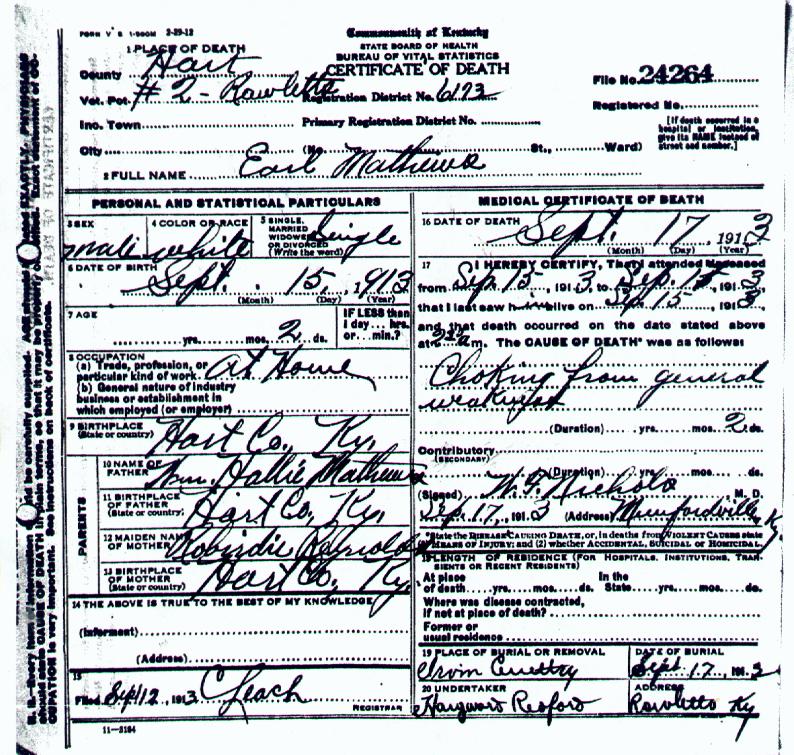 FORM V. S. 1-500M 2-29-12
Commonwealth of Kentucky
STATE BOARD OF HEALTH
BUREAU OF VITAL STATISTICS
CERTIFICATE OF DEATH
1 PLACE OF DEATH
County Hart
Vot. Pct. #2 - Rowletts Registration District No. 6173
File No. 24264
Registered No.
Inc. Town Primary Registration District No.
[If death occurred in a
hospital or institution,
give its NAME instead of
street and number.]
City (No. St., Ward)
2 FULL NAME Earl Mathews
PERSONAL AND STATISTICAL PARTICULARS
3 SEX male
4 COLOR OR RACE white
5 SINGLE,
MARRIED
WIDOWED
OR DIVORCED
(Write the word) Single
6 DATE OF BIRTH
Sept. 15, 1913
(Month) (Day) (Year)
7 AGE
yrs. mos. 2 ds.
IF LESS than
1 day... hrs.
or... min.?
8 OCCUPATION
(a) Trade, profession, or
particular kind of work At Home
(b) General nature of industry
business or establishment in
which employed (or employer)
9 BIRTHPLACE
(State or country) Hart Co., Ky.
PARENTS
10 NAME OF
FATHER Wm. Hallie Mathews
11 BIRTHPLACE
OF FATHER
(State or country) Hart Co., Ky.
12 MAIDEN NAME
OF MOTHER Reynolds
13 BIRTHPLACE
OF MOTHER
(State or country) Hart Co., Ky.
14 THE ABOVE IS TRUE TO THE BEST OF MY KNOWLEDGE
(Informent)
(Address)
15
Filed Sept 12, 1913 C Leach
REGISTRAR
11-3184
MEDICAL CERTIFICATE OF DEATH
16 DATE OF DEATH
Sept. 17, 1913
(Month) (Day) (Year)
17 I HEREBY CERTIFY, That I attended deceased
from Sep 15, 1913, to Sep. 15, 1913
that I last saw h im alive on Sep. 15, 1913,
and that death occurred on the date stated above
at m. The CAUSE OF DEATH* was as follows:
Choking from general
weakness
(Duration) yrs. mos. 2 ds.
Contributory
(SECONDARY)
(Duration) yrs. mos. ds.
(Signed) Nichols M. D.
Sep. 17, 1913 (Address) Munfordville Ky
*State the DISEASE CAUSING DEATH, or, in deaths from VIOLENT CAUSES state
(1) MEANS OF INJURY; and (2) whether ACCIDENTAL, SUICIDAL OR HOMICIDAL
18 LENGTH OF RESIDENCE (FOR HOSPITALS, INSTITUTIONS, TRAN-
SIENTS OR RECENT RESIDENTS)
At place In the
of death yrs. mos. ds. State yrs. mos. ds.
Where was disease contracted,
if not at place of death?
Former or
usual residence
19 PLACE OF BURIAL OR REMOVAL
Irvin
DATE OF BURIAL
Sept. 17, 1913
20 UNDERTAKER
Redford
ADDRESS
Rowletts Ky